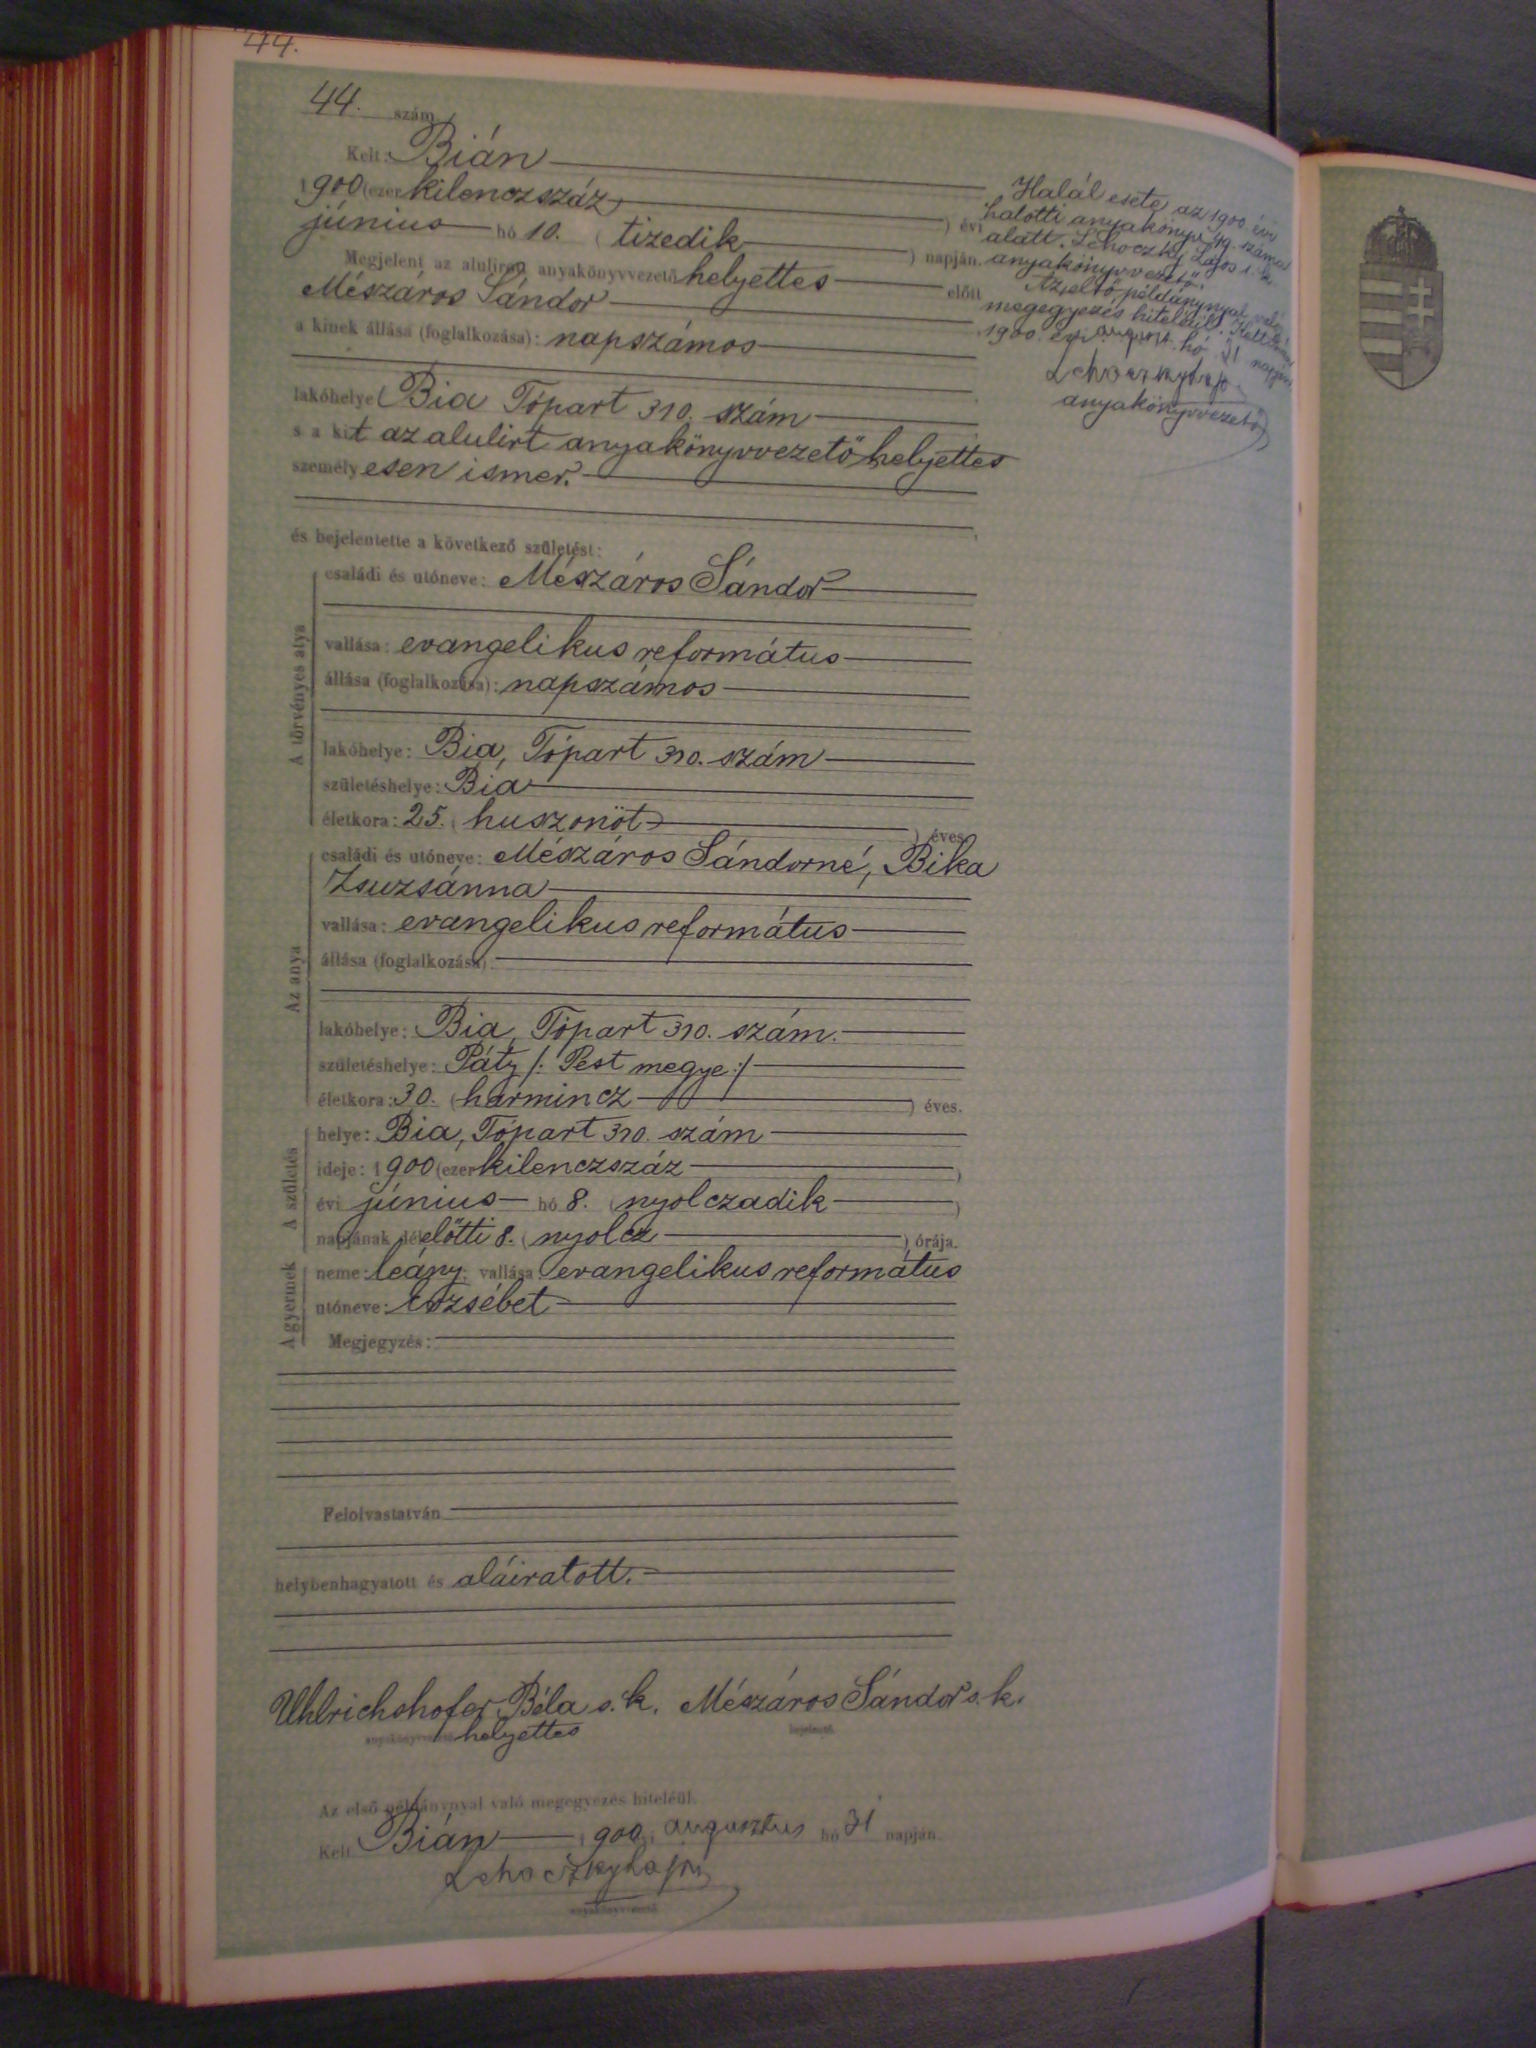 44.
44. szám
Kelt: Bián
1900 (ezer kilenczszáz
) évi
június hó 10. ( tizedik
) napján.
Megjelent az alulirott anyakönyvvezető helyettes
előtt
Mészáros Sándor
a kinek állása (foglalkozása): napszámos
lakóhelye Bia Tópart 310. szám
s a kit az alulirt anyakönyvvezető helyettes
személyesen ismer.
és bejelentette a következő születést:
A törvényes atya
családi és utóneve: Mészáros Sándor
vallása: evangelikus református
állása (foglalkozása): napszámos
lakóhelye: Bia, Tópart 310. szám
születéshelye: Bia
életkora: 25. ( huszonöt ) éves.
Az anya
családi és utóneve: Mészáros Sándorné, Bika
Zsuzsánna
vallása: evangelikus református
állása (foglalkozása):
lakóhelye: Bia, Tópart 310. szám.
születéshelye: Páty /: Pest megye :/
életkora: 30. (harmincz ) éves.
A születés
helye: Bia, Tópart 310. szám
ideje: 1900 (ezer kilenczszáz )
évi június hó 8. ( nyolczadik )
napjának délelőtti 8. ( nyolcz ) órája.
A gyermek
neme: leány; vallása evangelikus református
utóneve: Erzsébet
Megjegyzés:
Felolvastatván
helybenhagyatott és aláiratott.
Uhlrichshofer Béla s. k. Mészáros Sándor s. k.
anyakönyvvezető helyettes bejelentő.
Az első példánynyal való megegyezés hiteléül.
Kelt Bián 1900. augusztus hó 31 napján.
Lehoczky Lajos
anyakönyvvezető
Halál esete az 1900. évi
halotti anyakönyv 49. száma
alatt. Lehoczky Lajos s. k.
anyakönyvvezető.
Az első példánynyal való
megegyezés hiteléül. Kelt Bián
1900. évi august. hó 31 napján
Lehoczky Lajos
anyakönyvvezető